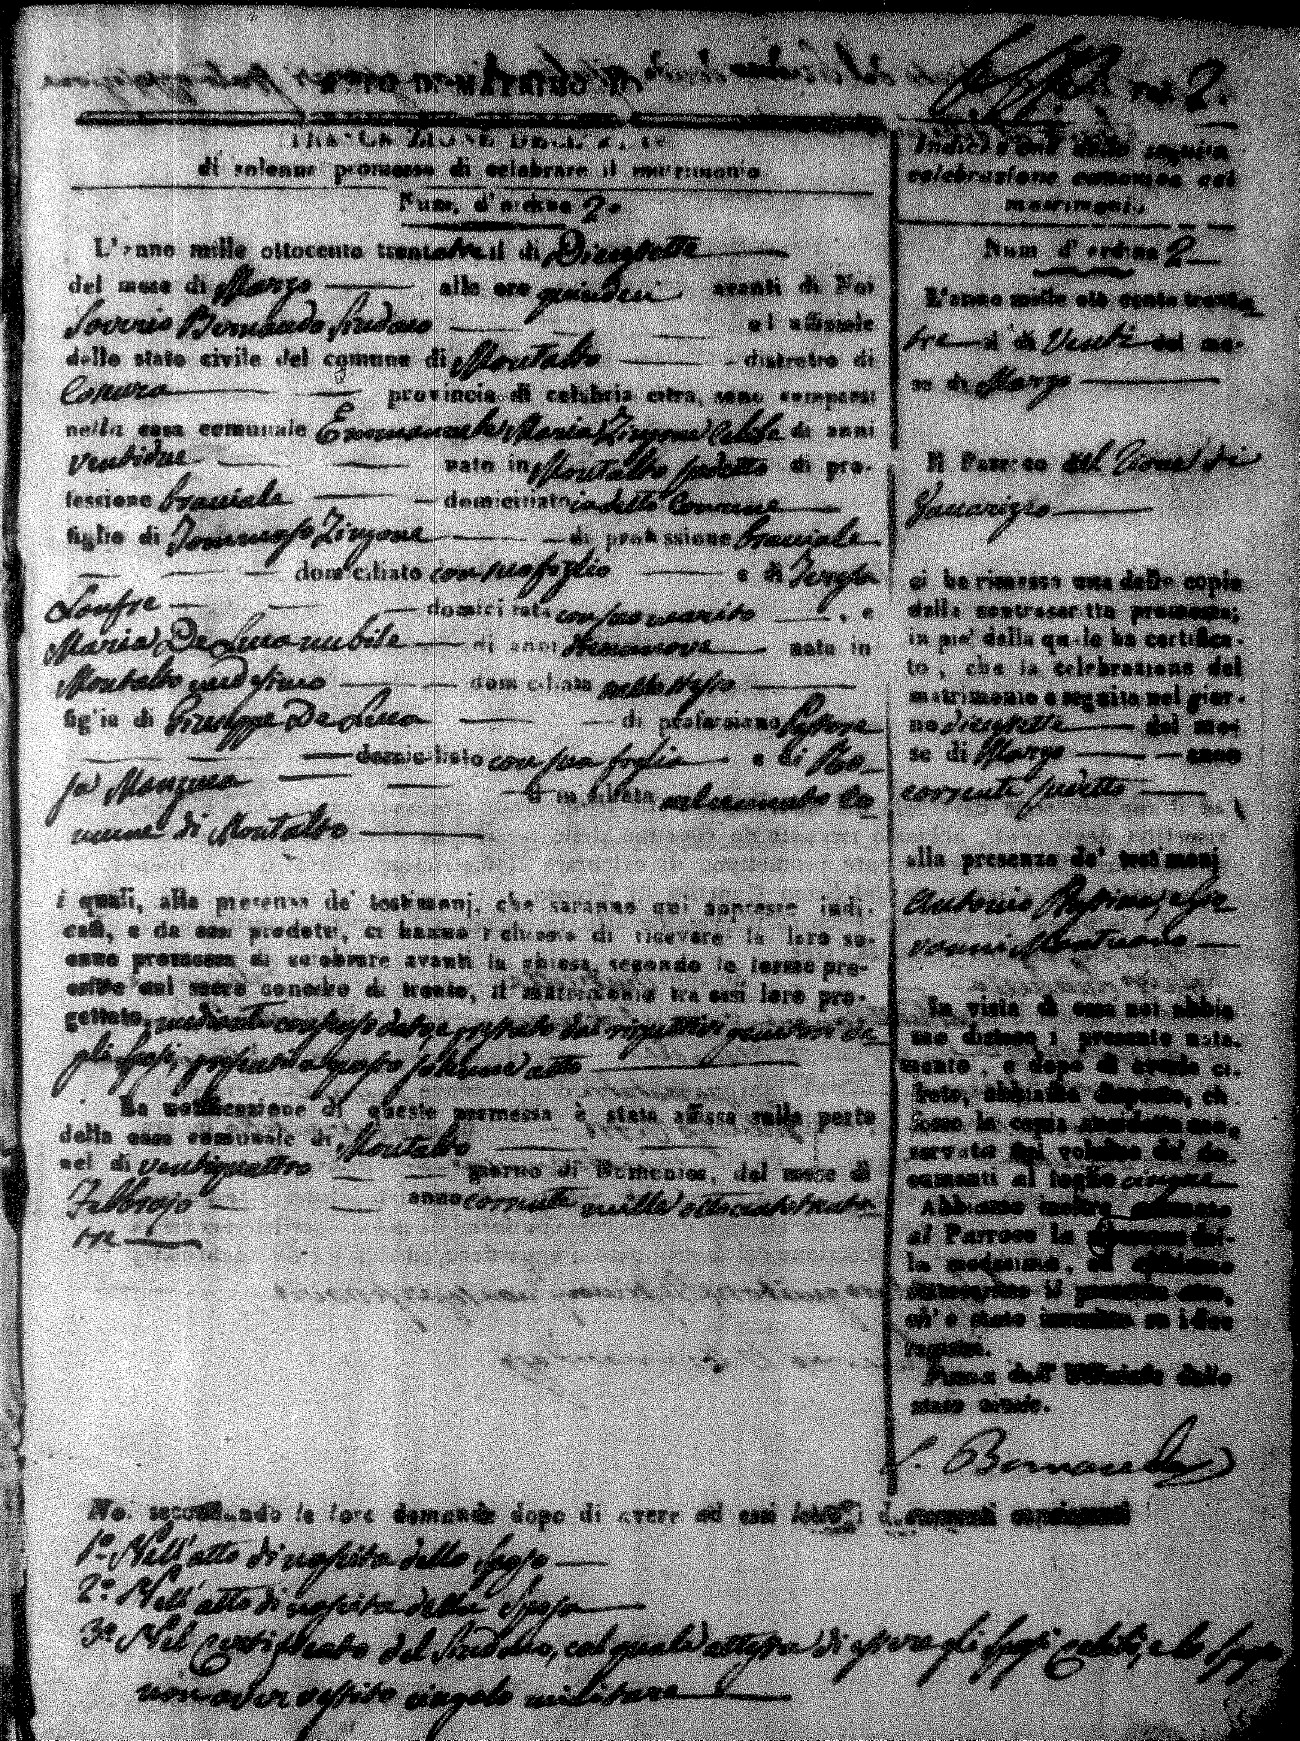 Num. 2.
di solenne promessa di celebrare il matrimonio
Num. d'ordine 2.
L'anno mille ottocento trentatre il di Diecisette
del mese di Marzo alle ore quindeci avanti di Noi
Saverio Bernardo Sindaco ed uffiziale
dello stato civile del comune di Montalto distretto di
Cosenza provincia di calabria citra, sono comparsi
nella casa comunale Emmanuele Maria Zingone Celibe di anni
ventidue nato in Montalto sudetto di pro-
fessione bracciale domiciliato in detto Comune
figlio di Tommaso Zingone di professione bracciale
domiciliato con suo figlio e di Teresa
domiciliata con suo marito, e
Maria De Luca nubile di anni diecinove nata in
Montalto medesimo domiciliata nello stesso
figlia di Giuseppe De Luca di professione
domiciliato con sua figlia e di Ro-
sa domiciliata nel cennato Co-
mune di Montalto
i quali, alla presenza de' testimonj, che saranno qui appresso indi-
cati, e da essi prodotti, ci hanno richiesto di ricevere la loro so-
lenne promessa di celebrare avanti la chiesa, secondo le forme pre-
scritte dal sacro concilio di trento, il matrimonio tra essi loro pro-
gettato, mediante consenso dato, e prestato dai rispettivi genitori de-
gli sposi, presenti a questo solenne atto
La notificazione di questa promessa è stata affissa sulla porta
della casa comunale di Montalto
nel di ventiquattro giorno di Domenica, del mese di
Febbrajo anno corrente mille ottocentotrenta-
tre
Noi secondando le loro domande dopo di avere ad essi letti i documenti
1º Nell'atto di nascita dello sposo
2º Nell'atto di nascita della sposa
3º Nel Certificato del Sindaco, col quale attesta di essere gli sposi celibi, e lo sposo
non aver vestito cingolo militare
Indicazione della seguita
celebrazione canonica del
matrimonio
Num d'ordine 2
L'anno mille otto cento trenta
tre il di Venti del me-
se di Marzo
Il Parroco di
ci ha rimessa una delle copie
della contrascritta promessa;
in piè della quale ha certifica-
to, che la celebrazione del
matrimonio è seguita nel gior-
no diecisette del me-
se di Marzo anno
corrente sudetto
alla presenza de' testimonj
Antonio e Gio-
vanni
In vista di essa noi abbia-
mo disteso il presente nota-
mento, e dopo di averla ci-
frata, abbiamo disposto, che
fosse la copia anzidetta con-
servata nel volume de' do-
cumenti al foglio cinque
Abbiamo inoltre
al Parroco la del-
la medesima, ed abbiamo
sottoscritto il presente atto,
ch'è stato inscritto su i due
registri.
Firma dell'Uffiziale dello
stato civile.
S. Bernardo